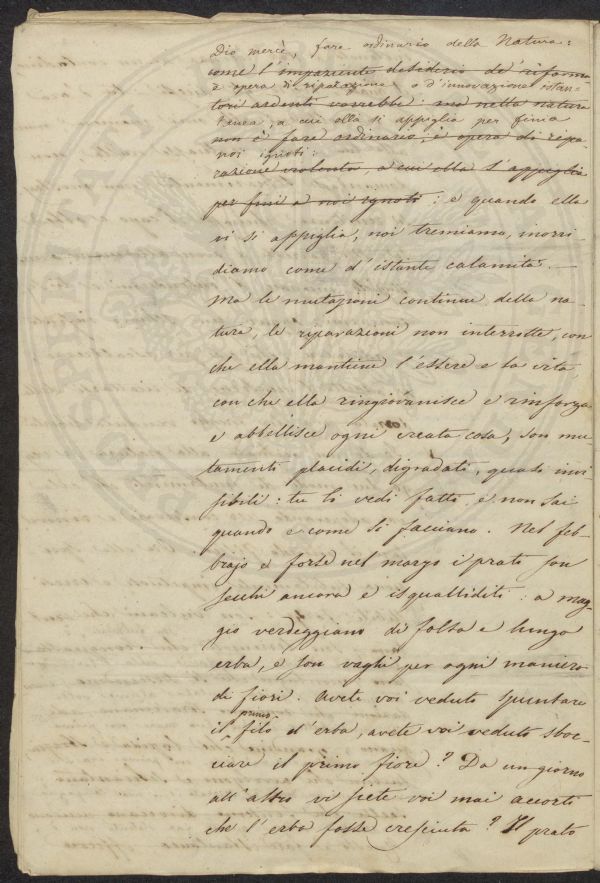 Dio mercè, fare ordinario della Natura:
come l'impaziente desiderio de' riforma
è opera di riparazione o d'innovazione istan-
tori ardenti vorrebbe: ma nella natura
tanea, a cui ella si appiglia per fini a
non è fare ordinario, è opera di ripa-
noi ignoti:
razione violenta, a cui ella s'appiglia
per fini a noi ignoti: e quando ella
vi si appiglia, noi tremiamo, inorri-
diamo come d'istante calamità. —
Ma le mutazioni continue della na-
tura, le riparazioni non interrotte, con
che ella mantiene l'essere e la vita
con che ella ringiovanisce e rinforza
e abbellisce ogni creata cosa, son mu-
tamenti placidi, digradati, quasi invi
sibili: tu li vedi fatti, e non sai
quando e come si facciano. Nel feb-
brajo e forse nel marzo i prati son
secchi ancora e isqualliditi: a mag-
gio verdeggiano di folta e lunga
erba, e son vaghi per ogni maniera
di fiori. Avete voi veduto spuntare
il primo filo d'erba, avete voi veduto sboc-
ciare il primo fiore? Da un giorno
all'altro vi siete voi mai accorti
che l'erba fosse cresciuta? Il prato